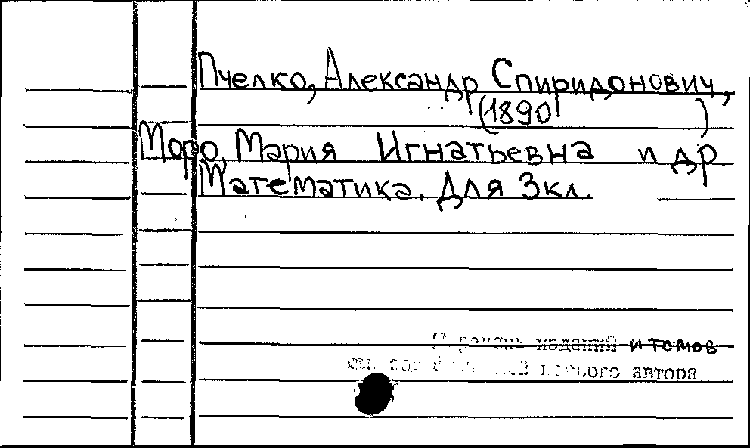 Пчелко, Александр Спиридонович,
(1890 )
Моро, Мария Игнатьевна и др
Математика. Для 3кл.
изданий и томов
автора